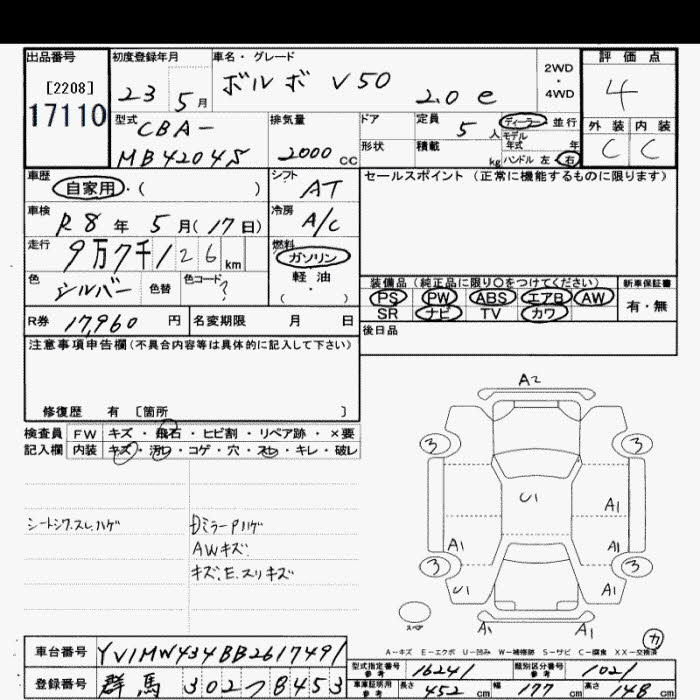 出品番号 初度登録年月 車名・グレード 2WD・4WD 評価点
[2208]
17110
23 5月 ボルボ V50 2.0 e 4
型式 CBA-MB4204S 排気量 2000 CC ドア 定員 5人 ディーラー 並行 外装 内装
形状 積載 kg モデル年式 年 C C
ハンドル 左・右
車歴 自家用・( ) シフト AT セールスポイント(正常に機能するものに限ります)
車検 R8年 5月(17日) 冷房 A/C
走行 9万7千126km 燃料 ガソリン
軽油・( )
色 シルバー 色替 色コード ?
装備品(純正品に限り○をつけてください) 新車保証書
PS PW ABS エアB AW 有・無
SR ナビ TV カワ
R券 17,960円 名変期限 月 日 後日品
注意事項申告欄(不具合内容等は具体的に記入して下さい)
修復歴 有 〔箇所 〕
検査員 FW キズ・飛石・ヒビ割・リペア跡・×要
記入欄 内装 キズ・汚レ・コゲ・穴・スレ・キレ・破レ
シートシワ.スレ.ハゲ
AWキズ.
キズ.E.スリキズ
A2
3 3
U1 A1
A1 A1
3 3
U1 A1
スペア A1 A1
A-キズ E-エクボ U-凹み W-補修跡 S-サビ C-腐食 XX-交換済
カ
車台番号 YV1MW434BB2617491
登録番号 群馬 302 つ 8453
型式指定番号 参考 16241 類別区分番号 参考 1021
車庫証明用 参考 長さ 452cm 幅 177cm 高さ